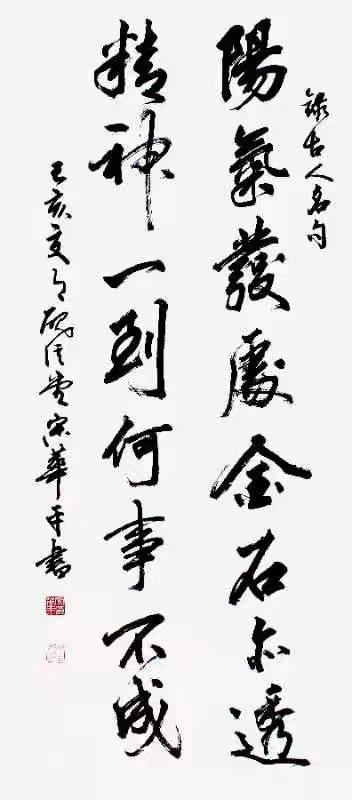 錄古人名句
陽氣發處金石亦透
精神一到何事不成
己亥夏月宋華平書